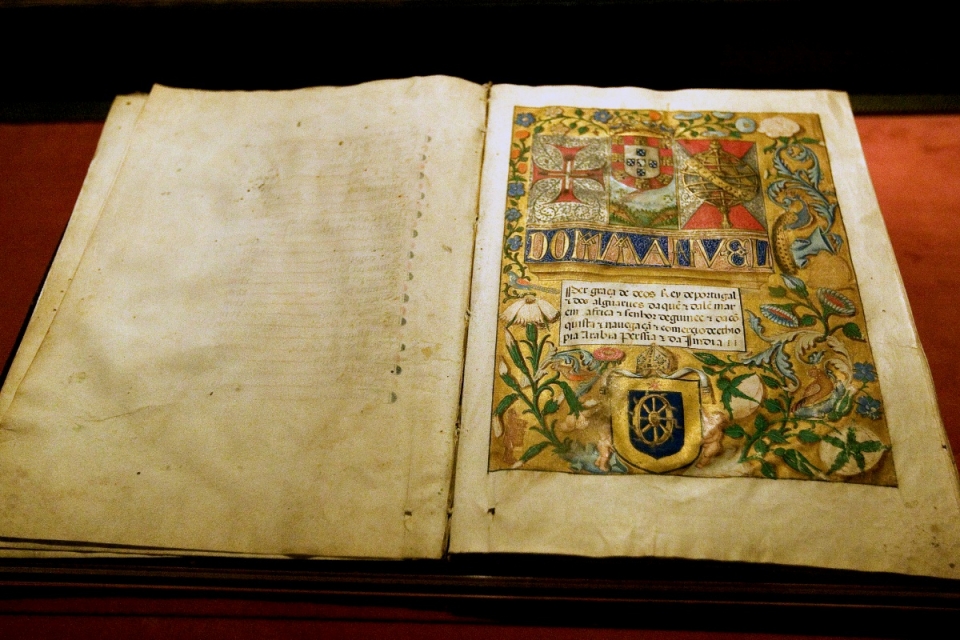 DOM MANVEL
Per graça de deos Rey de portugal
⁊ dos alguarues da quē ⁊ dalē mar
em africa ⁊ senhor de guinee ⁊ da cō
quista ⁊ nauegaçā ⁊ comercio de ethio
pia Arabia Perssia ⁊ da Jndia